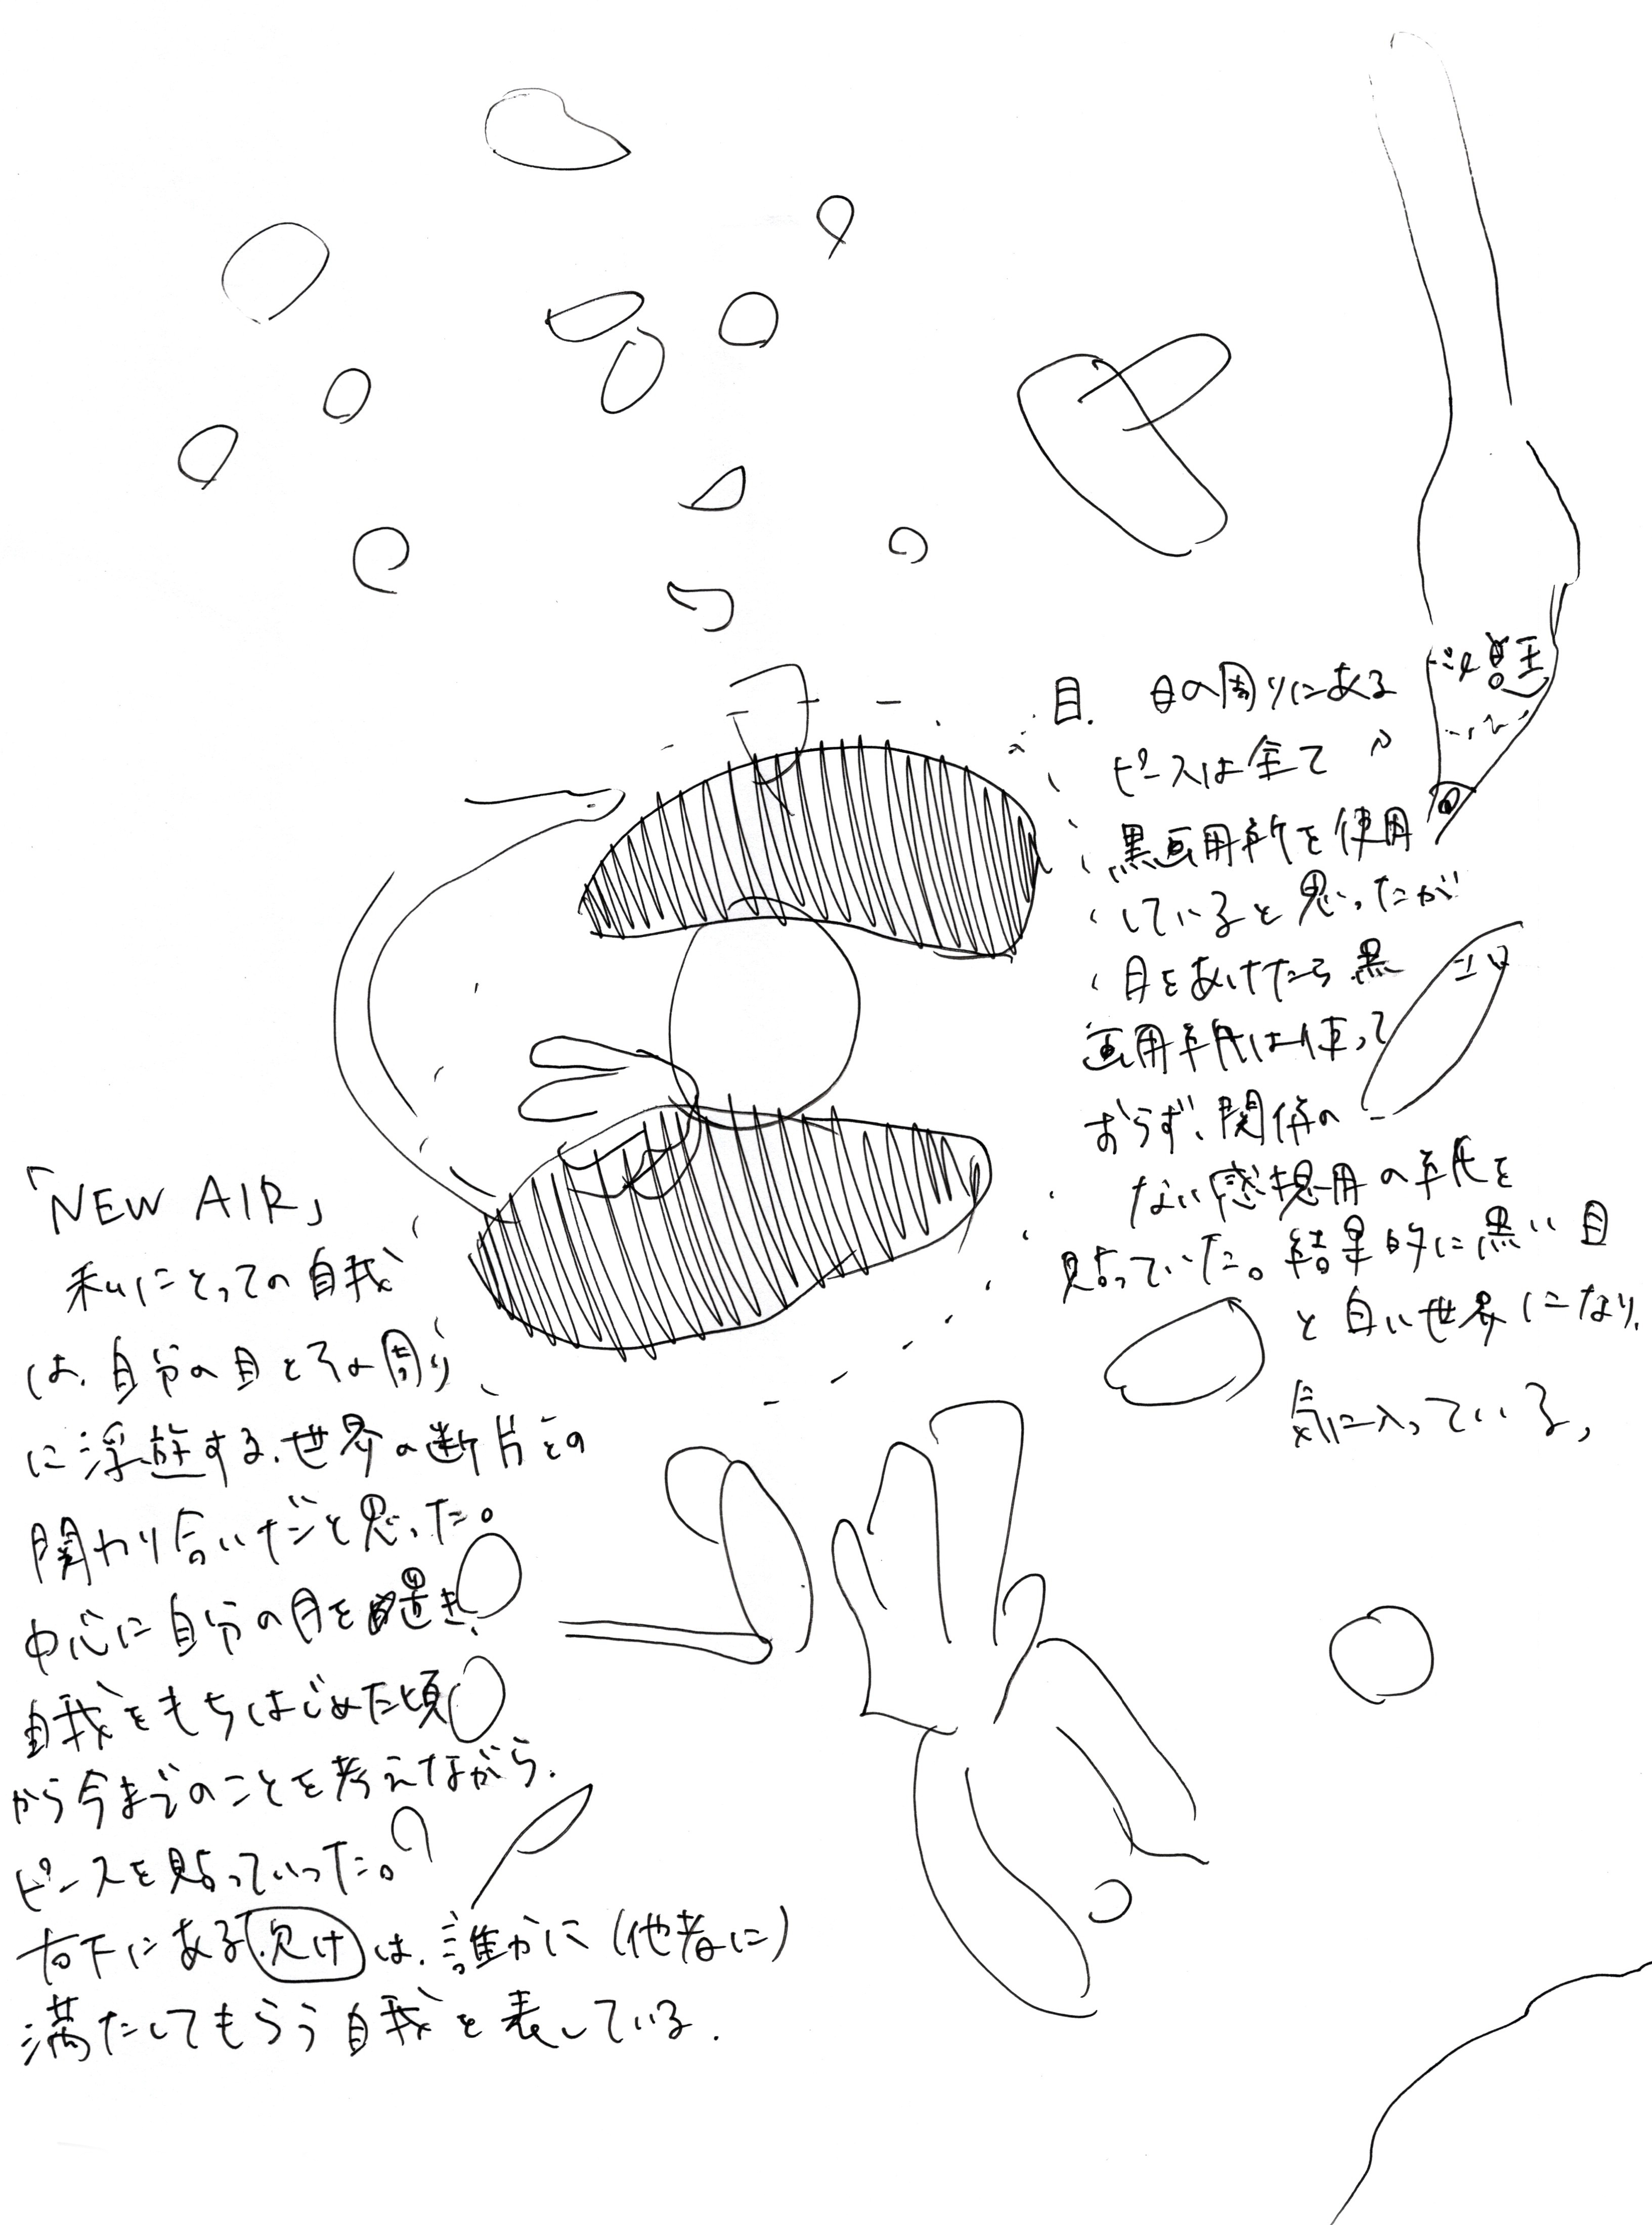 「NEW AIR」
私にとっての自我
は、自分の目とその周り
に浮遊する、世界の断片との
関わり合いだと思った。
中心に自分の目を置き、
自我をもちはじめた頃
から今までのことを考えながら、
ピースを貼っていった。
右下にある欠けは、誰かに(他者に)
満たしてもらう自我を表している.
目. 目の周りにある
ピースは全て
黒画用紙を使用
していると思ったが
目をあけたら黒
画用紙は使って
おらず、関係の
ない感想用の紙を
貼っていた。結果的に黒い目
と白い世界になり、
気に入っている、